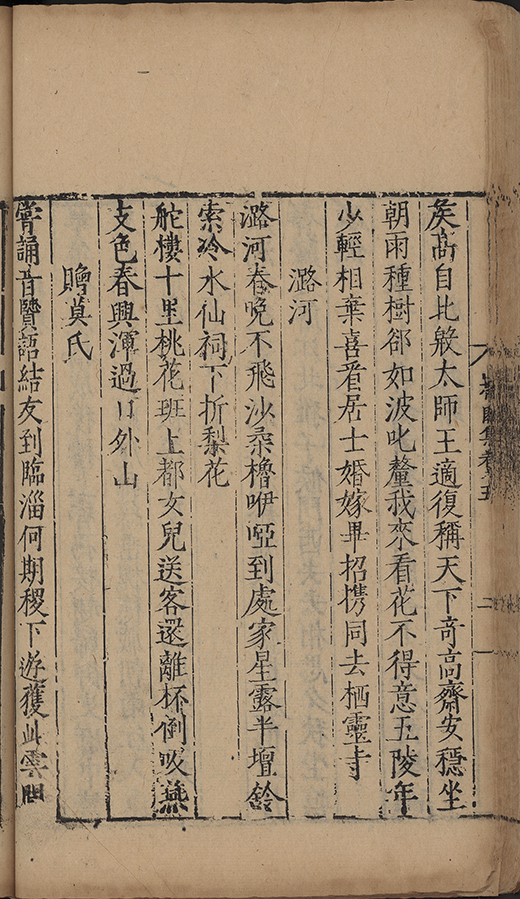 集卷五
二
矦高自比般太師王適復稱天下竒高齋安穩坐
朝雨種樹郤如波叱釐我來看花不得意五陵年
少輕相棄喜看居士婚嫁畢招携同去栖靈寺
潞河
潞河春晚不飛沙桑櫓咿啞到處家星露半壇鈴
索冷水仙祠下折梨花
舵樓十里桃花班上都女兒送客還離杯倒吸燕
支色春興渾過口外山
贈莫氏
嘗誦音贒語結友到臨淄何期稷下遊獲此雲間